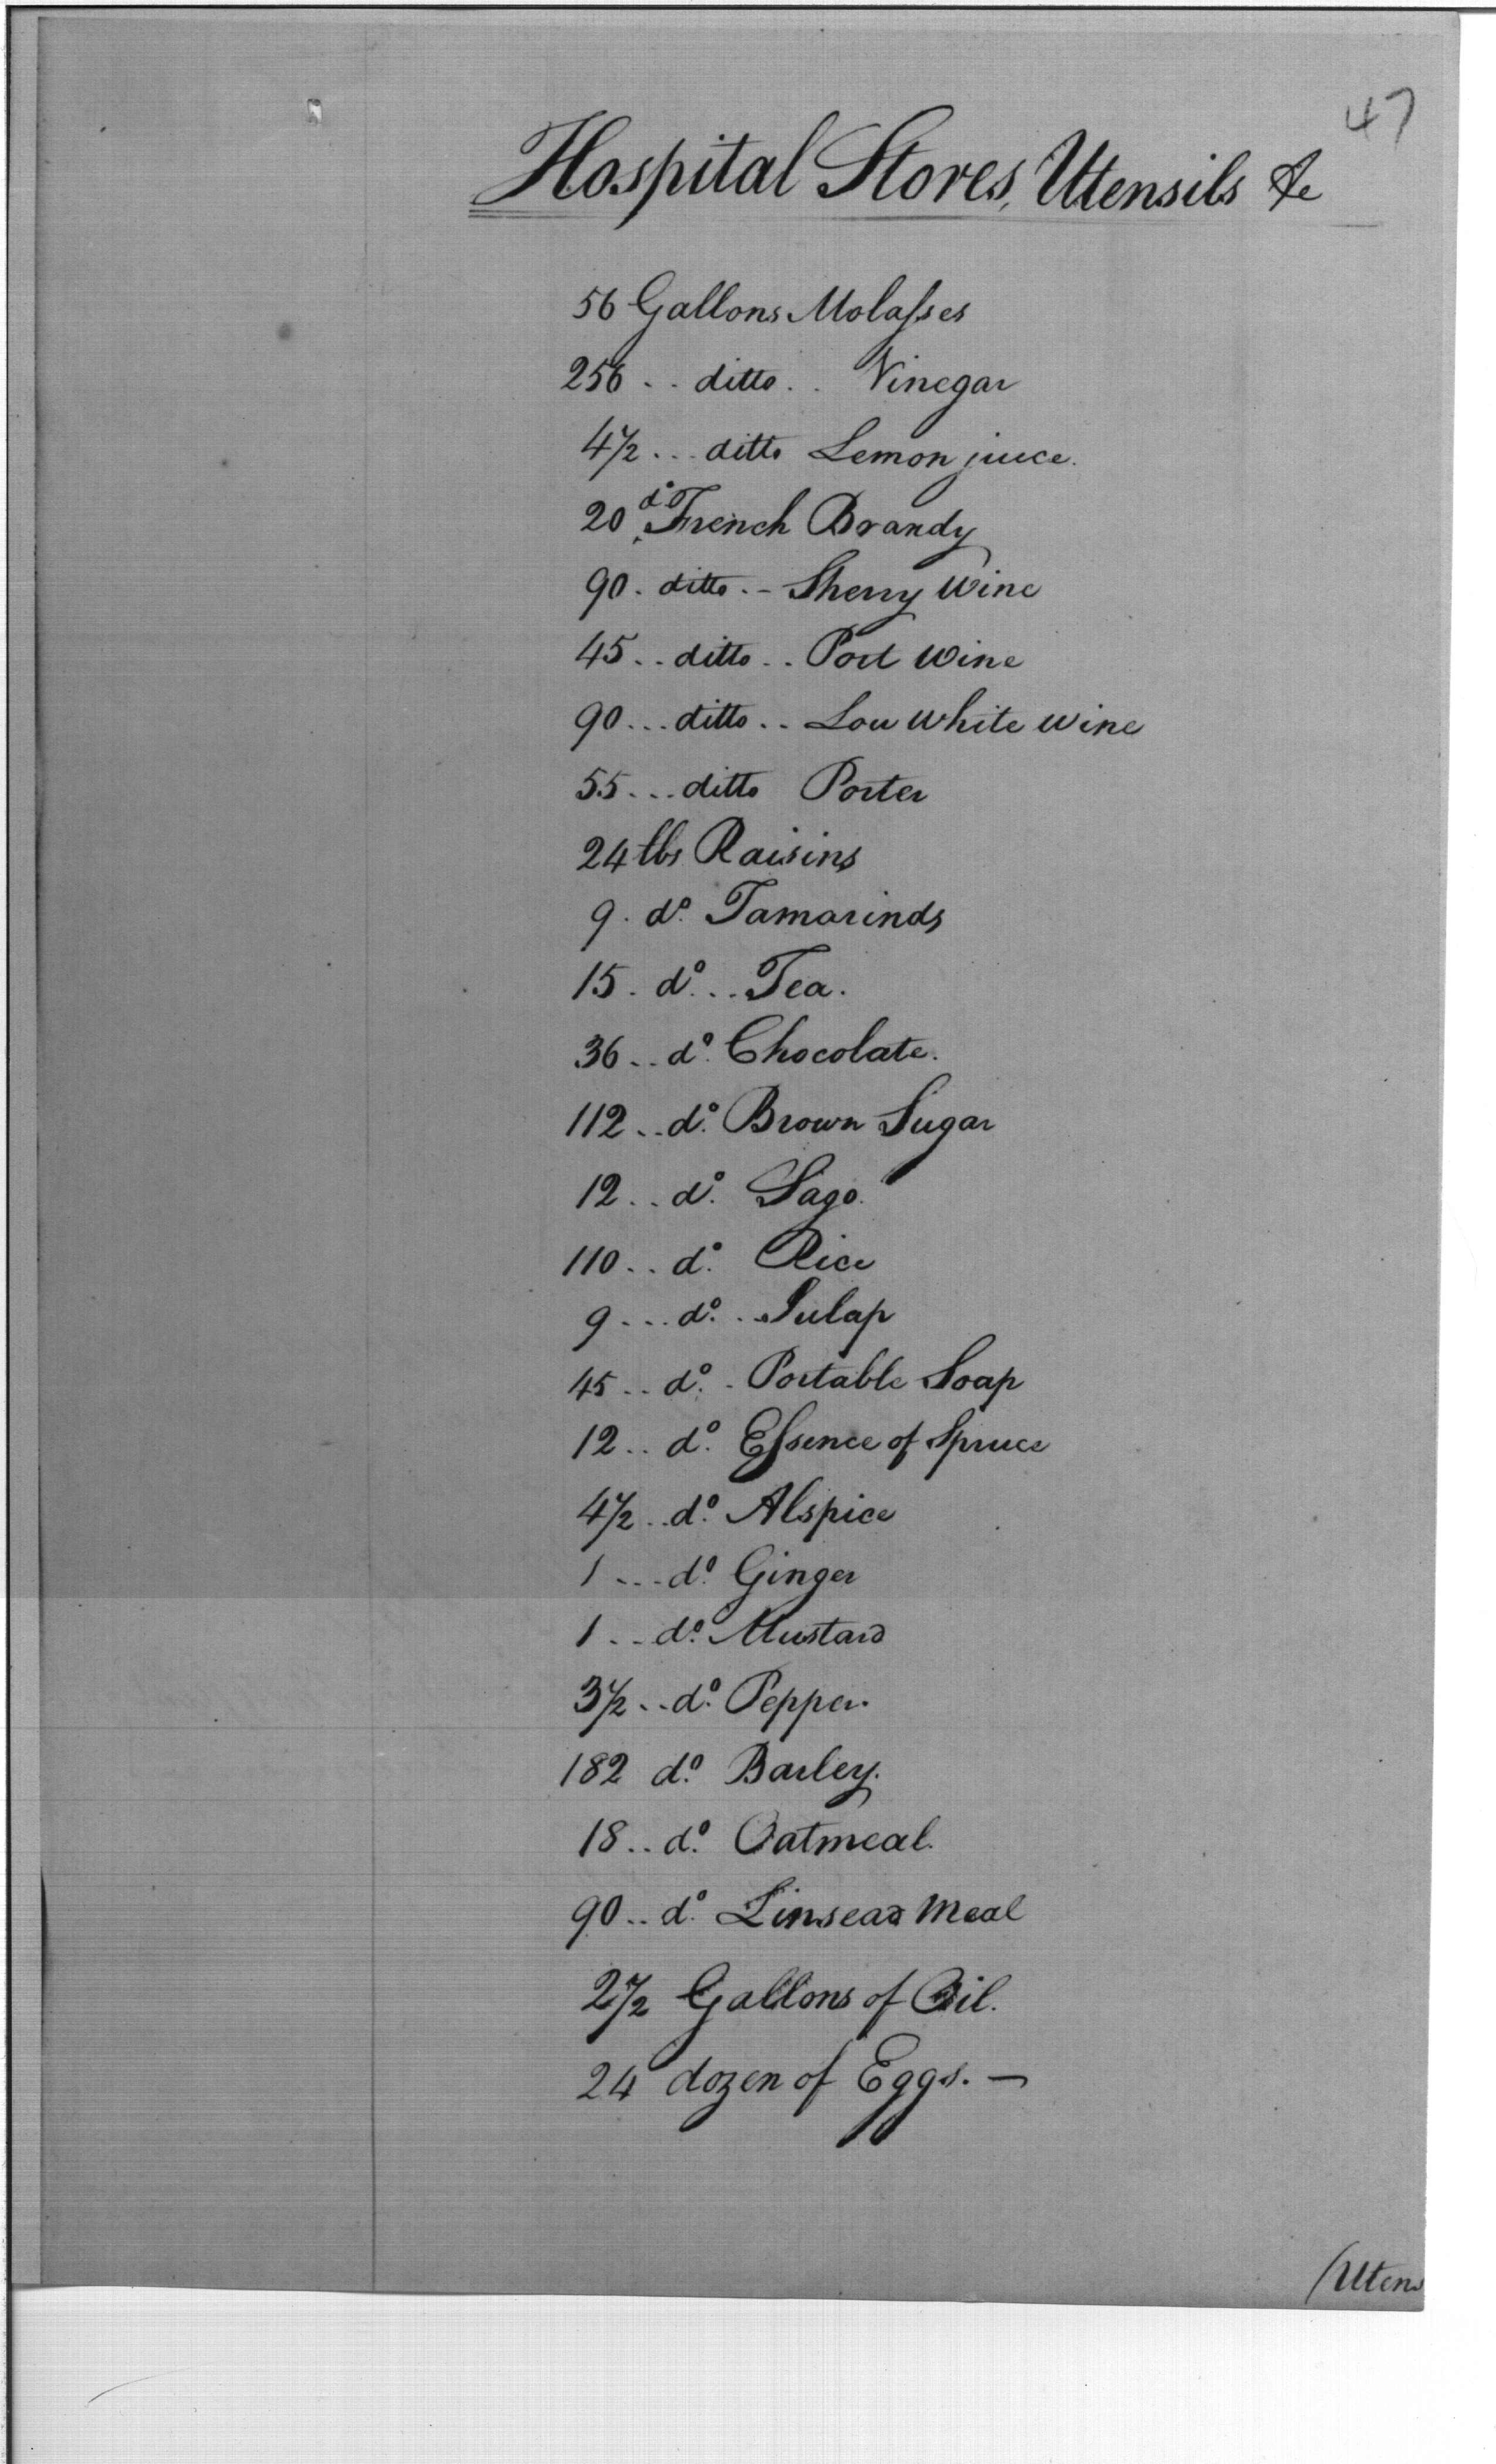 47
Hospital Stores, Utensils &c
56 Gallons Molasses
256 .. ditto .. Vinegar
4½ ... ditto Lemon juice.
20 do French Brandy
90 . ditto .- Sherry Wine
45 .. ditto .. Port Wine
90 ... ditto .. Low White Wine
55 ... ditto Porter
24 lbs Raisins
9 . do. Tamarinds
15 . do. .. Tea.
36 .. do. Chocolate.
112 .. do. Brown Sugar
12 .. do. Sago.
110 .. do. Rice
9 ... do. .. Julap
45 .. do. . Portable Soap
12 .. do. Essence of Spruce
4½ .. do. Alspice
1 ... do. Ginger
1 .. do. Mustard
3½ .. do. Pepper.
182 do. Barley.
18 .. do. Oatmeal.
90 .. do. Linsead Meal
2½ Gallons of Oil.
24 dozen of Eggs. —
(Utens